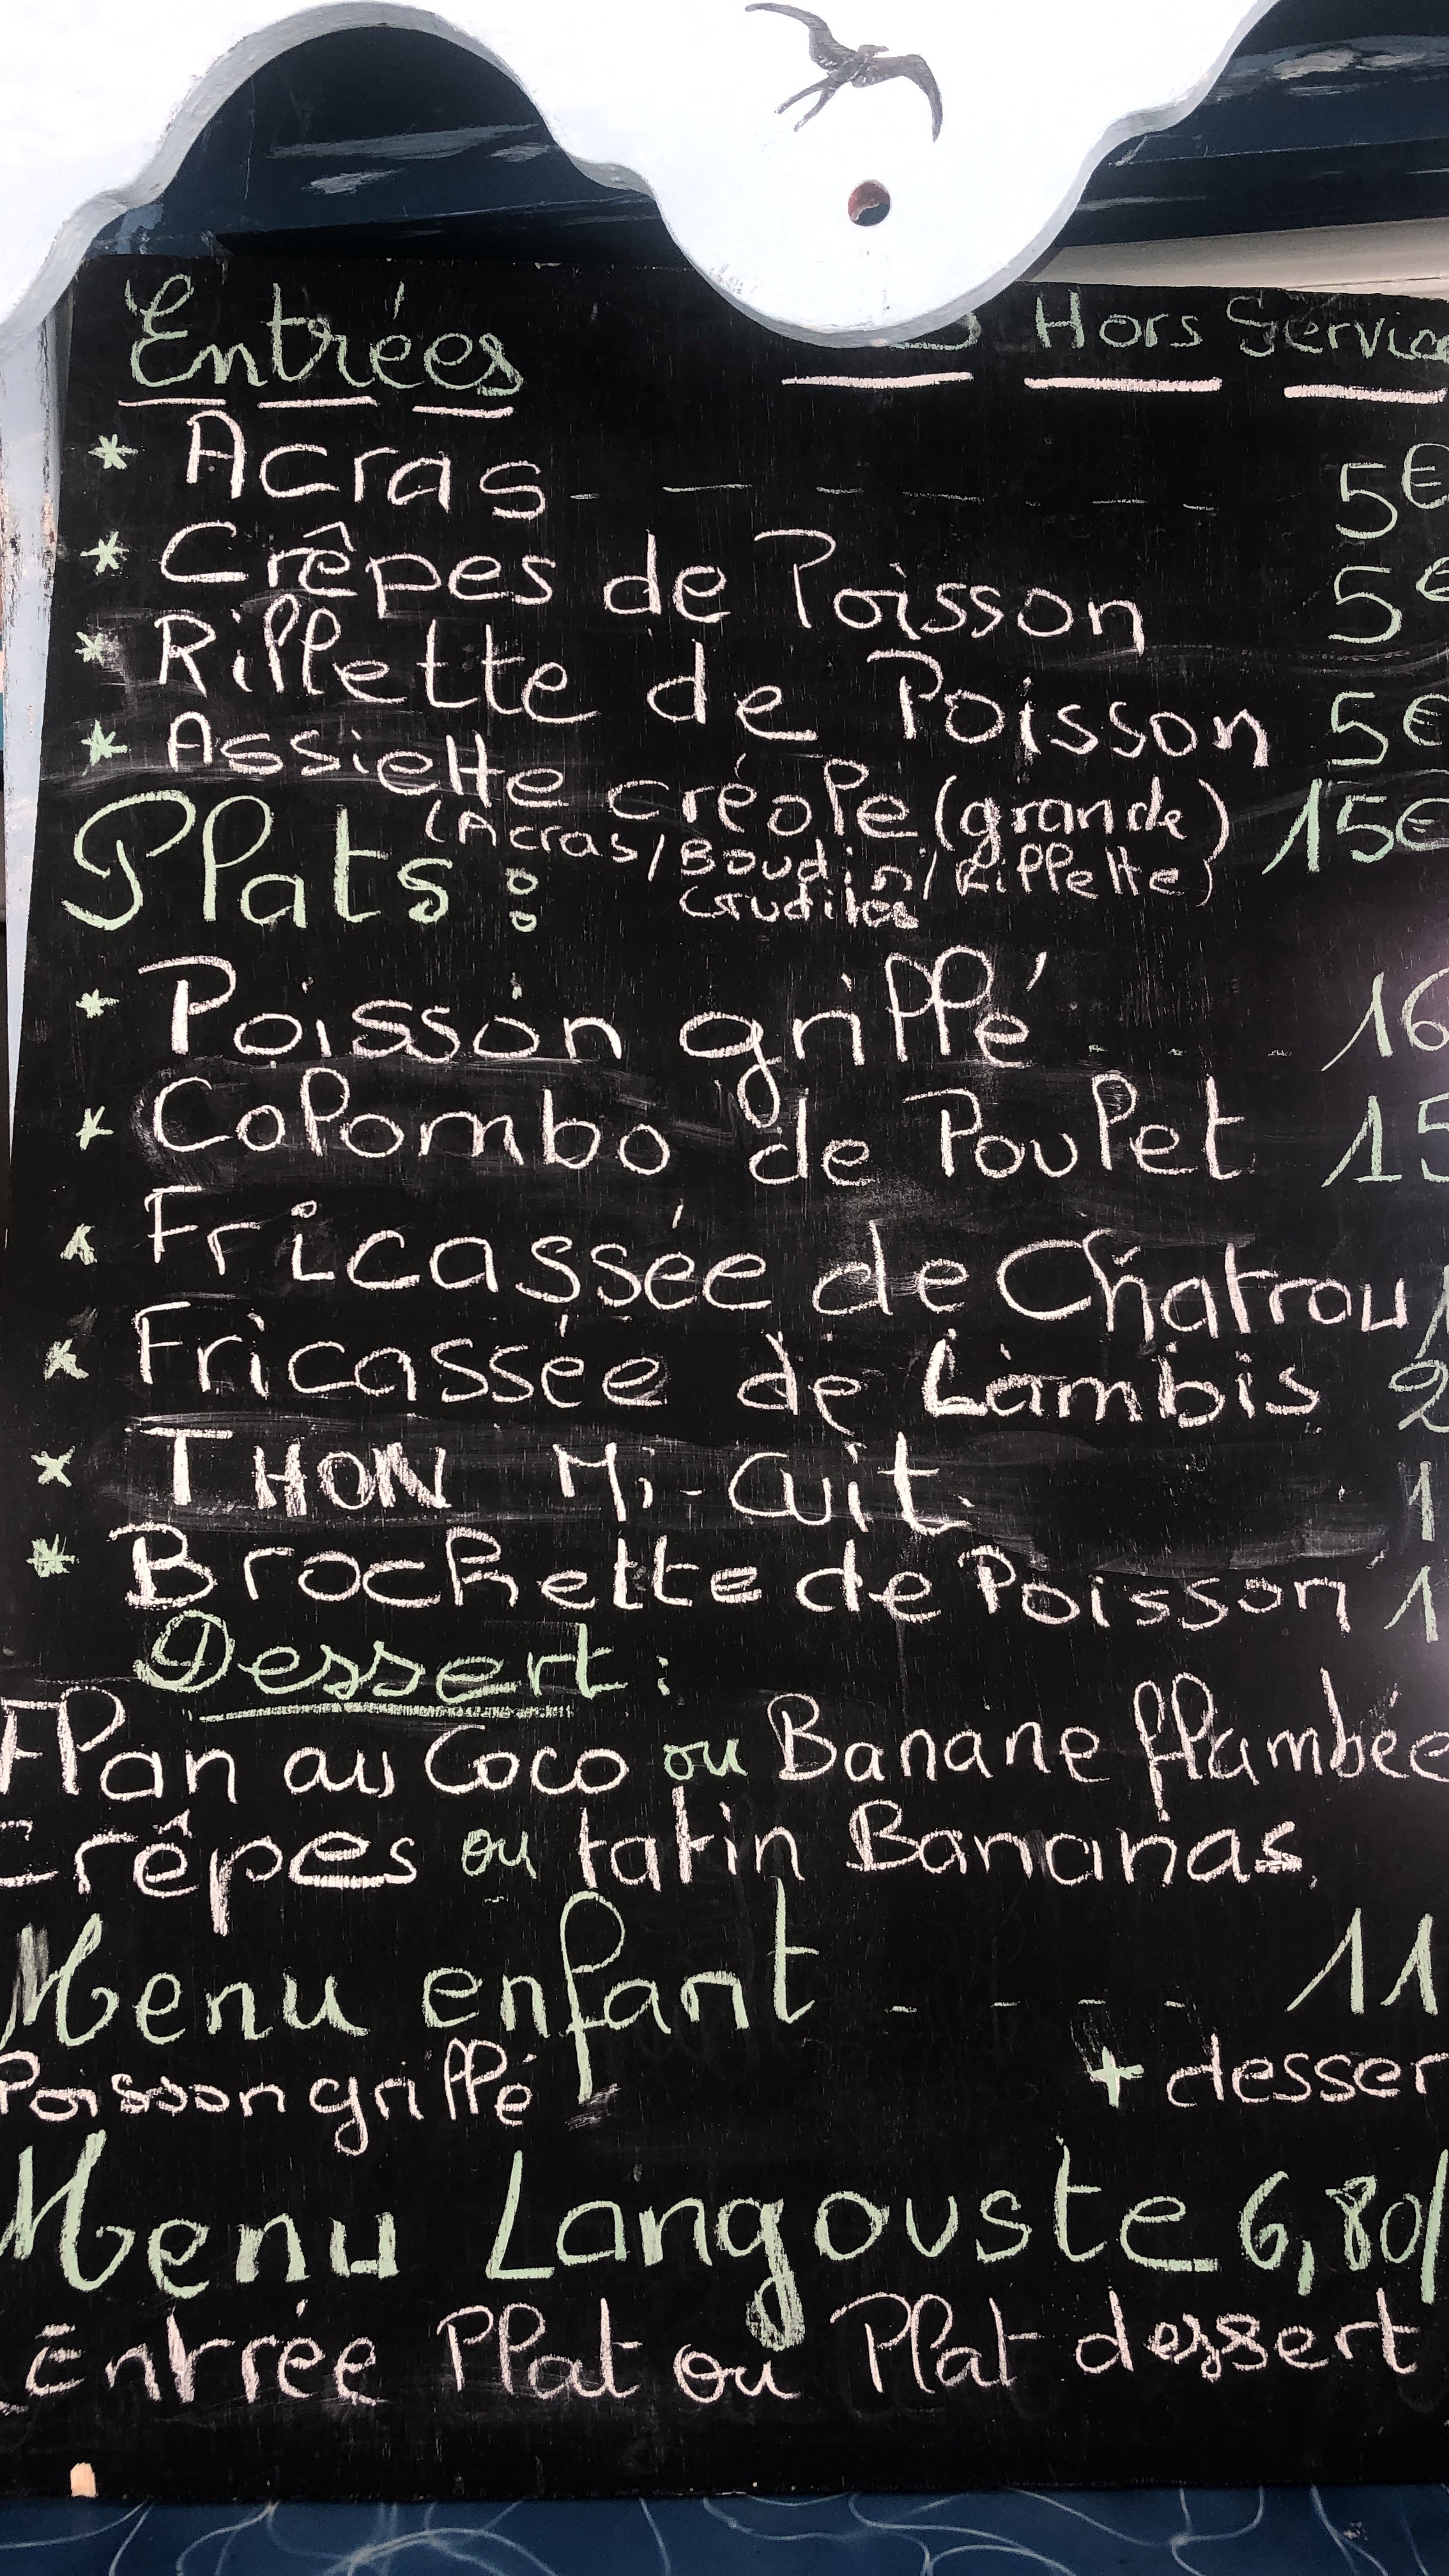 Entrées Hors Service
* Acras - - - - - - 5€
* Crêpes de Poisson 5€
* Rillette de Poisson 5€
* Assiette créole (grande) 15€
(Acras/Boudin/Rillette)
Crudités
Plats :
* Poisson grillé 16
* Colombo de Poulet 15
* Fricassée de Chatrou 1
* Fricassée de Lambis 2
* THON Mi-Cuit. 1
* Brochette de Poisson 1
Dessert :
Flan au Coco ou Banane flambée
Crêpes ou tatin Bananas
Menu enfant - - - - 11
Poisson grillé + desser
Menu Langouste 6,80/
Entrée Plat ou Plat dessert